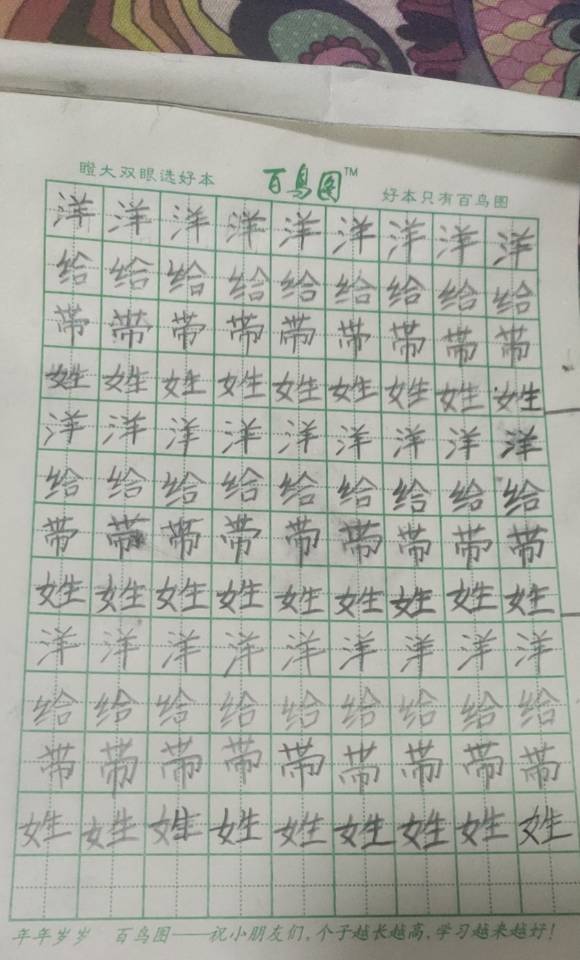 瞪大双眼选好本 百鸟图™ 好本只有百鸟图
洋洋洋洋洋洋洋洋洋
给给给给给给给给给
带带带带带带带带带
姓姓姓姓姓姓姓姓姓
洋洋洋洋洋洋洋洋洋
给给给给给给给给给
带带带带带带带带带
姓姓姓姓姓姓姓姓姓
洋洋洋洋洋洋洋洋洋
给给给给给给给给给
带带带带带带带带带
姓姓姓姓姓姓姓姓姓
年年岁岁 百鸟图——祝小朋友们,个子越长越高,学习越来越好!